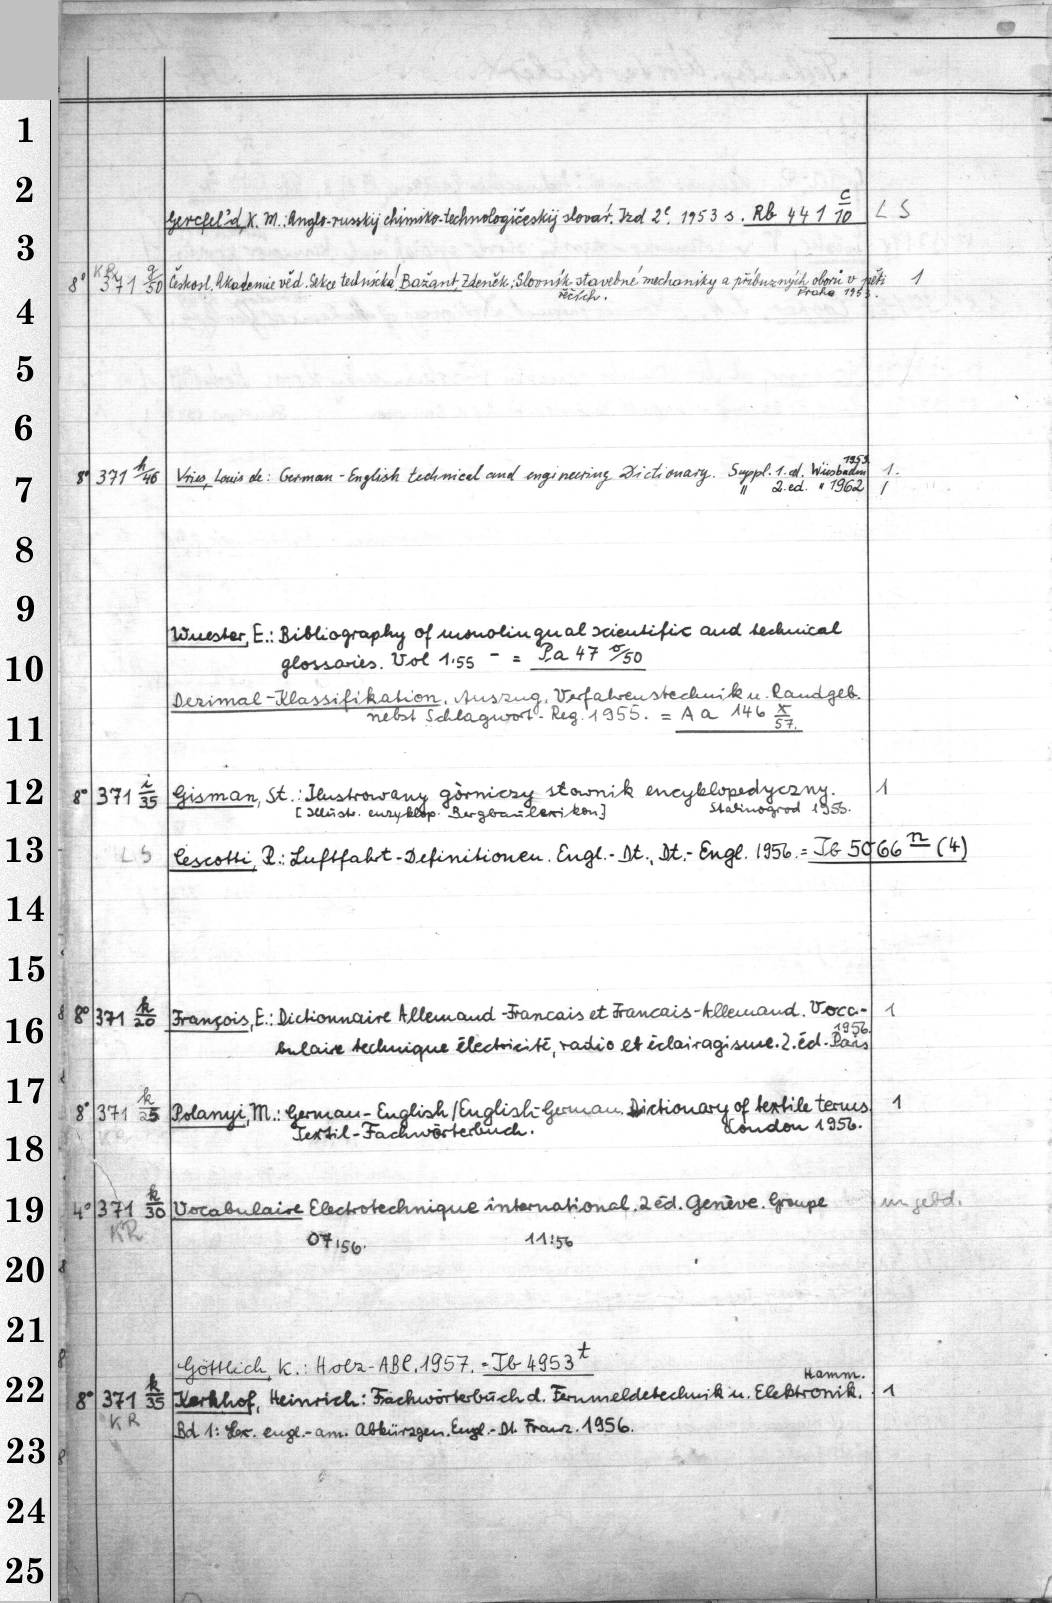 1
2
c
Gercfel'd, K. M.: Anglo-russkij chimiko-technologičeskij slovaŕ. Izd 2e. 1953 s. Rb 441 10 L S
3
KR
8° 371 g/50 Českosl. Akademie věd. Sekce technická! Bažant, Zdeněk: Slovník stavebné mechaniky a příbuzných oborů v pěti 1
řečích. Praha 1953.
4
5
6
1953
8° 371 h/46 Vries, Louis de: German-English technical and engineering Dictionary. Suppl. 1. ed. Wiesbaden 1.
7 " 2. ed. " 1962 1
8
9
Wuester, E.: Bibliography of monolingual scientific and technical
10 glossaries. Vol 1.55 - = Pa 47 o/50
Dezimal-Klassifikation. Auszug. Verfahrenstechnik u. Randgeb.
11 nebst Schlagwort-Reg. 1955. = Aa 146 x/57.
12 8° 371 i/35 Gisman, St.: Ilustrowany górniczy słownik encyklopedyczny. 1
[Illustr. enzyklop. Bergbaulexikon] Stalinogrod 1955.
13 L S Cescotti, R.: Luftfahrt-Definitionen. Engl.-Dt., Dt.-Engl. 1956. = Ib 5066 n (4)
14
15
8° 371 k/20 François, E.: Dictionnaire Allemand-Francais et Francais-Allemand. Voca- 1
16 1956.
bulaire technique électricité, radio et éclairagisme. 2. éd. Paris
17
8° 371 k/25 Polanyi, M.: German-English/English-German Dictionary of textile terms 1
Textil-Fachwörterbuch. London 1956.
18
19 4° 371 k/30 Vocabulaire Electrotechnique international. 2 éd. Genève. Groupe ungebd.
KR 07:56. 11:56
20
21
Göttlich, K.: Holz-ABC. 1957. = Ib 4953 t
Hamm.
22 8° 371 k/35 Kerkhof, Heinrich: Fachwörterbuch d. Fernmeldetechnik u. Elektronik. 1
KR Bd 1: Lex. engl.-am. Abkürzgen. Engl.-Dt. Franz. 1956.
23
24
25